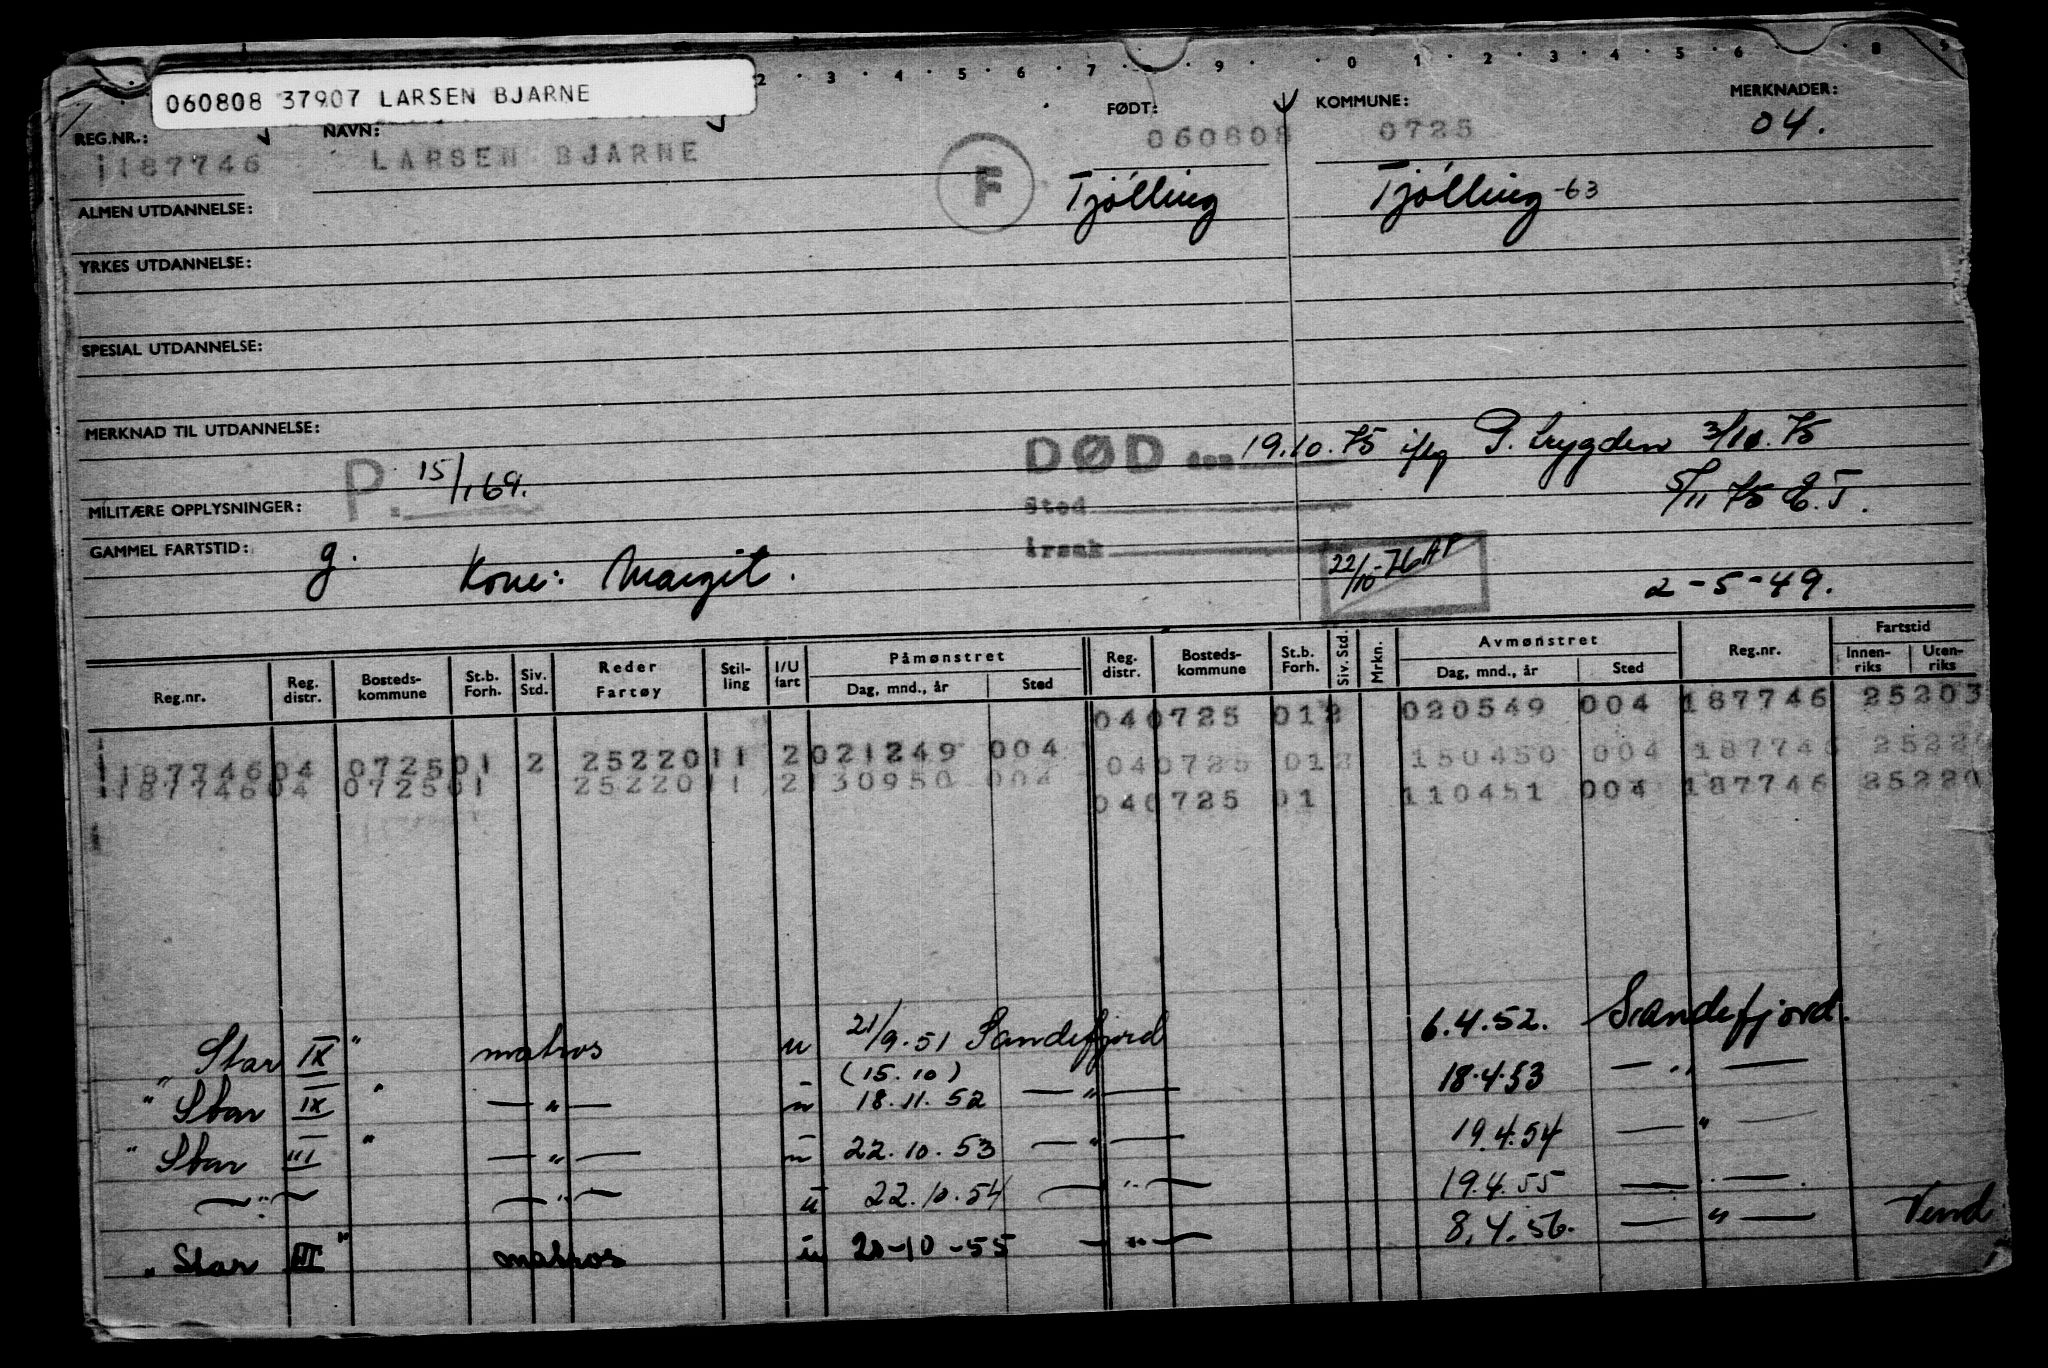 2 · 3 · 4 · 5 · 6 · 7 · 8 · 9 · 0 · 1 · 2 · 3 · 4 · 5 · 6 · 8 9
060808 37907 LARSEN BJARNE
REG.NR.: NAVN: FØDT: KOMMUNE: MERKNADER:
1187746 LARSEN BJARNE 060808 0725 04.
F Tjølling Tjølling -63
ALMEN UTDANNELSE:
YRKES UTDANNELSE:
SPESIAL UTDANNELSE:
MERKNAD TIL UTDANNELSE:
DØD den 19.10.75 iflg P. trygden 3/10.75
P. 15/1 69.
MILITÆRE OPPLYSNINGER: Sted 5/11 75 E.T.
GAMMEL FARTSTID: g. Kone: Margit. Årsak 22/10-76 AP 2-5-49.
Reg.nr. Reg. distr. Bosteds-kommune St.b. Forh. Siv. Std. Reder Fartøy Stil-ling I/U fart Påmønstret Dag, mnd., år Sted Reg. distr. Bosteds-kommune St.b. Forh. Siv. Std. Mrkn. Avmønstret Dag, mnd., år Sted Reg.nr. Fartstid Innen-riks Uten-riks
040725 012 020549 004 187746 25203
118774604 072501 2 2522011 2021249 004 040725 012 150450 004 187746 25220
118774604 072501 2522011 2130950 004 040725 01 110451 004 187746 25220
" Star IX " matros u 21/9.51 Sandefjord 6.4.52. Sandefjord.
(15.10)
" Star IX " — " — u 18.11.52 — " — 18.4.53 — " —
" Star III " — " — u 22.10.53 — " — 19.4.54 — " —
— " — — " — u 22.10.54 — " — 19.4.55 — " —
" Star III " matros u 20-10-55 — " — 8.4.56. — " — Vend